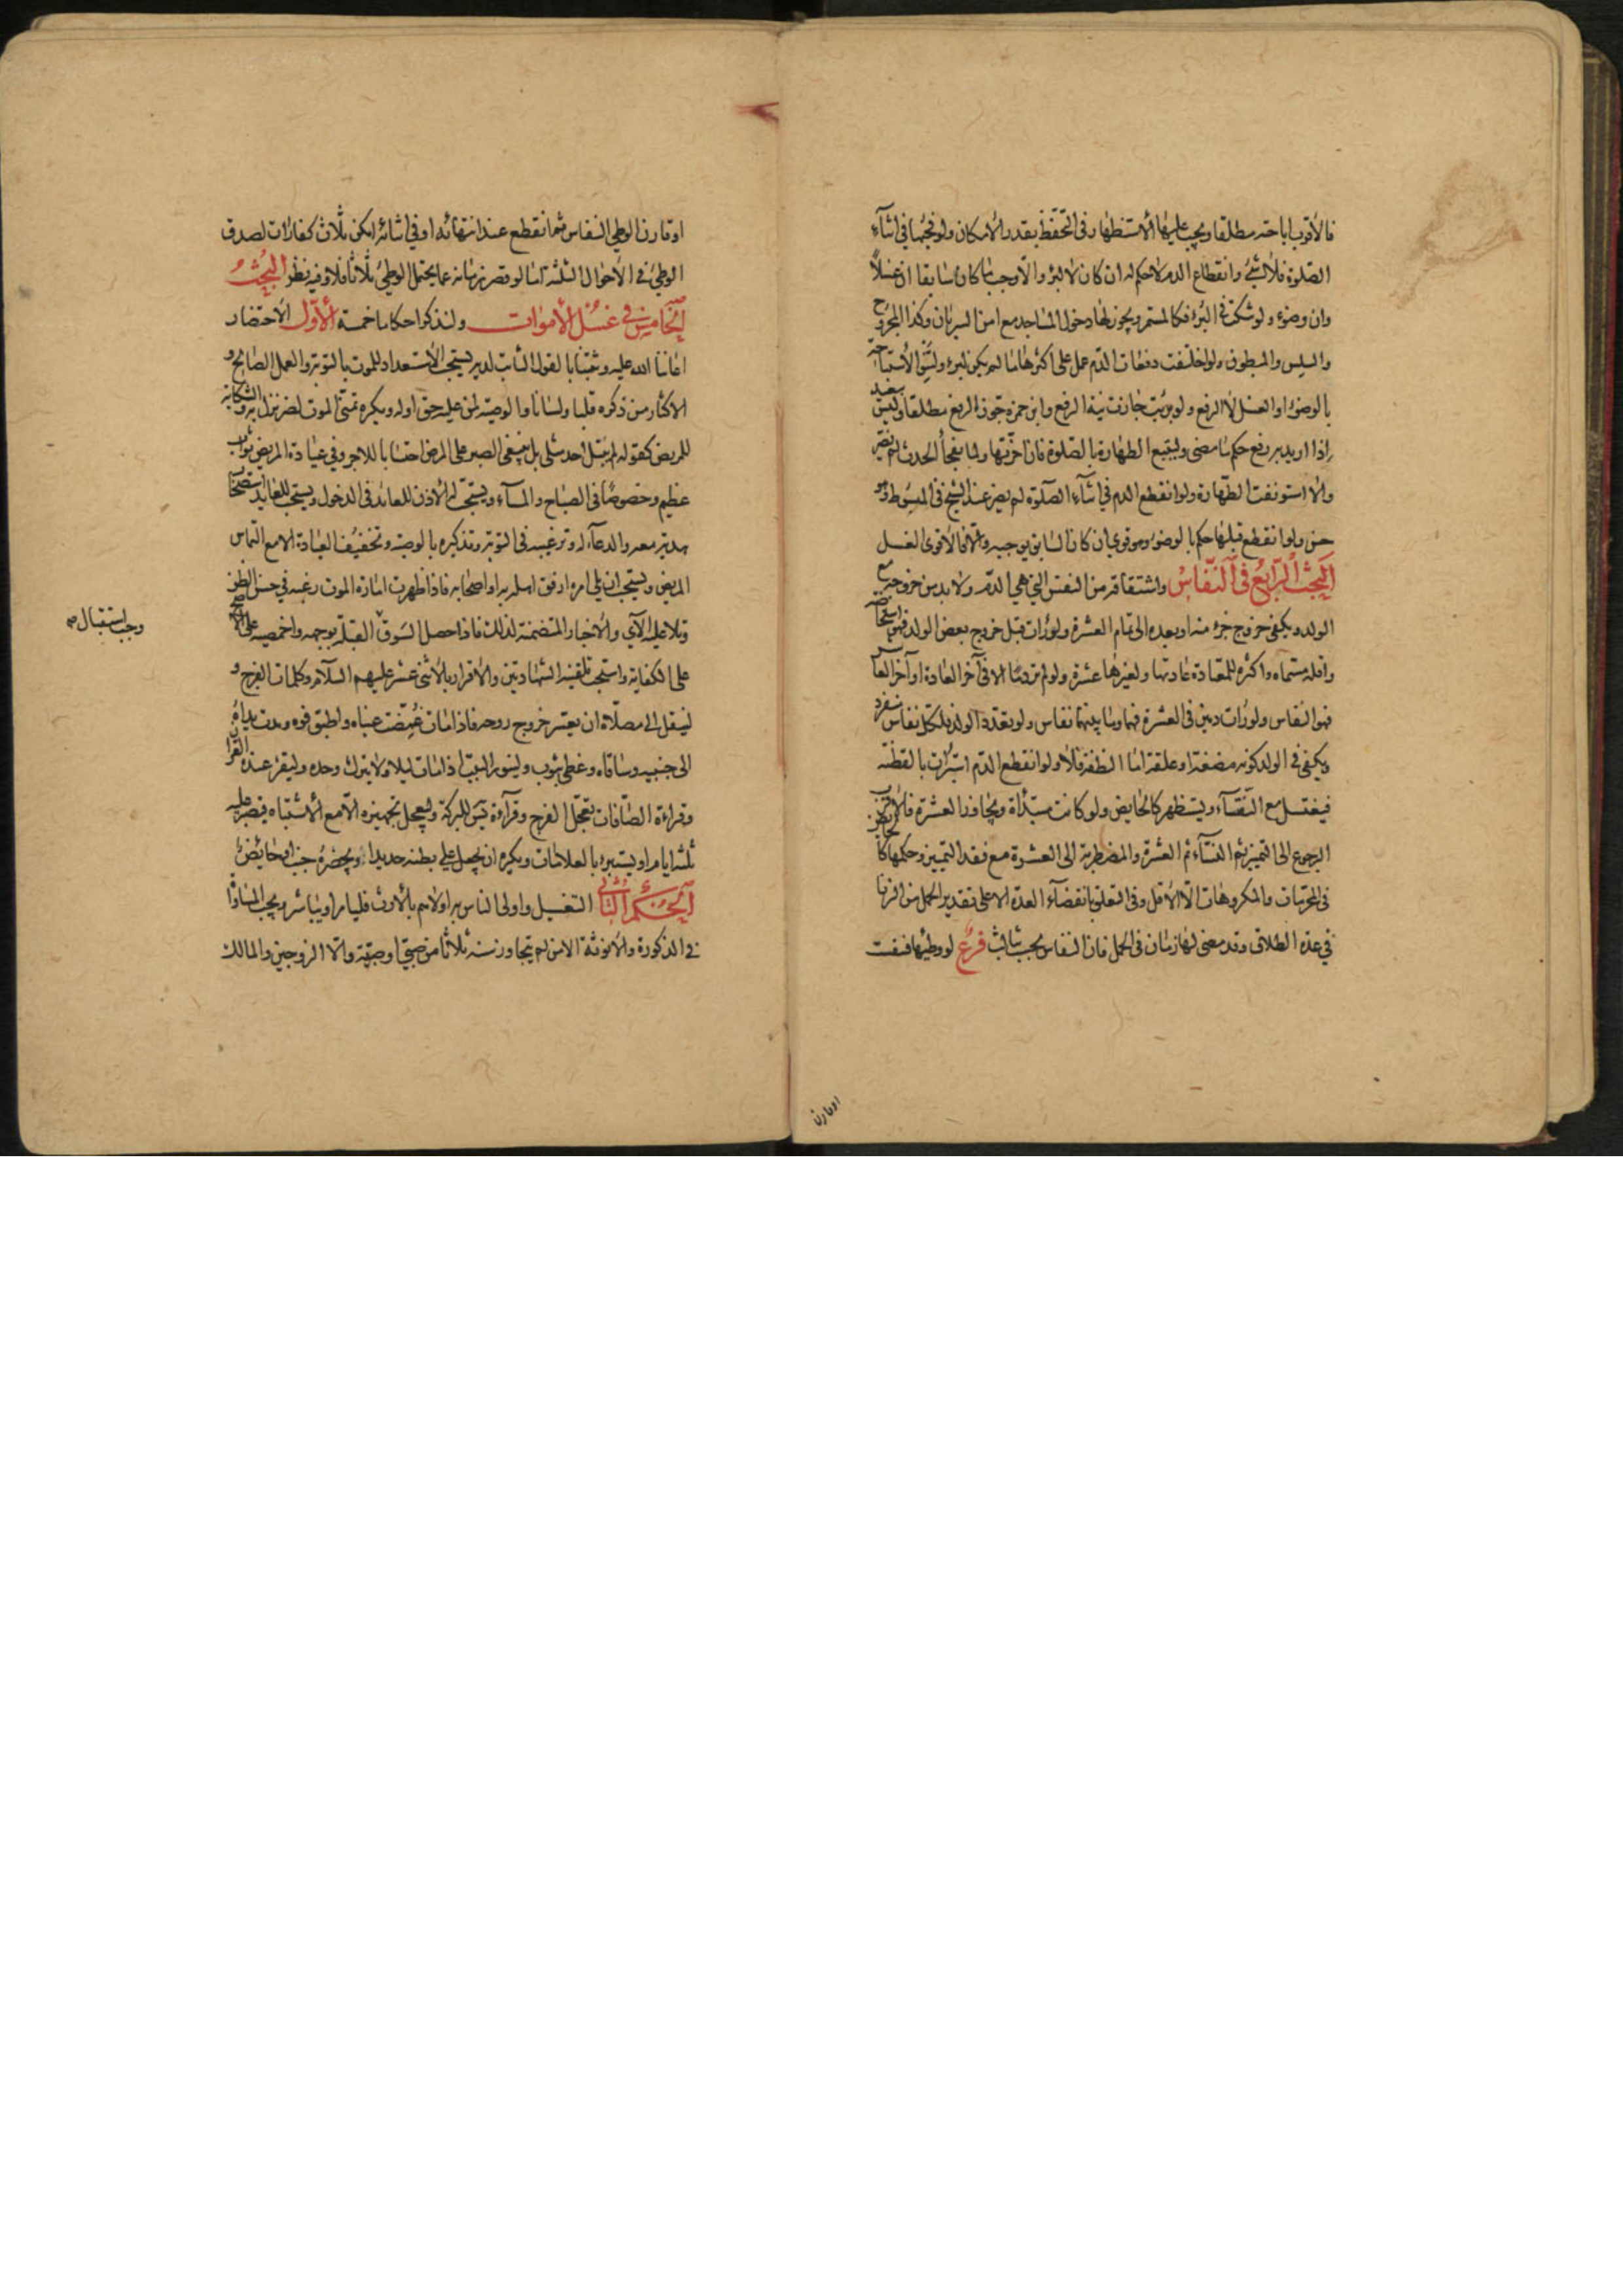 فالأقرب اباحته مطلقا ويجب عليها الاستظهار في التحفظ بقدر الامكان ولو فجئها في اثناء
الصلوة فلا شئ وانقطاع الدم لا حكم له ان كان لا لبرؤ والا وجب ما كان سابقا ان غسلا
وان وضوء ولو شكت في البرؤ فكالمستمر ويجوز لها دخول المساجد مع امن السريان وكذا المجروح
والسلس والمبطون ولو اختلفت دفعات الدم عمل على اكثرها ما لم يكن لبرؤ ولتنو الاستباحة
بالوضوء او الغسل لا الرفع ولو برئت جازت نية الرفع وابن حمزة جوز الرفع مطلقا وليس ببعيد
اذا اريد به رفع حكم ما مضى وليتبع الطهارة بالصلوة فان اخرتها ولما يفجأ الحدث لم يضر
والا استونفت الطهارة ولو انقطع الدم في اثناء الصلوة لم يضر عند الشيخ في المبسوط وهو
حسن ولو انقطع قبلها حكم بالوضوء وهو قوي ان كان السابق يوجبه والا فالاقوى الغسل
البحث الرابع في النفاس واشتقاقه من النفس التي هي الدم ولا بد من خروجه مع
الولد ويكفي خروج جزء منه او بعده الى تمام العشرة ولو رات قبل خروج بعض الولد فهو استحاضة
واقله مسماه واكثره للمعتادة عادتها ولغيرها عشرة ولو لم تر دما الا في آخر العادة او آخر العاشر
فهو النفاس ولو رات دمين في العشرة فهما وما بينهما نفاس ولو تعدد الولد فلكل نفاس منفرد
ويكفي في الولد كونه مضغة او علقة اما النطفة فلا ولو انقطع الدم استبرات بالقطنة
فيغتسل مع النقاء وليستظهر كالحايض ولو كانت مبتداة وتجاوز العشرة فالاقرب
الرجوع الى التميز ثم النساء ثم العشرة والمضطربة الى العشرة مع فقد التمييز وحكمها كالحايض
في المحرمات والمكروهات الا الاقل وفي التعلق بانقضاء العدة الا على تقدير الحمل من الزنا
في عدة الطلاق وقد مضى لها زمان في الحمل فان النفاس يحسب ثالث فرع لو وطئها فنفست
اوقارن
او قارن الوطي النفاس ثم انقطع عند انتهائه او في اثنائه امكن ثلاث كفارات لصدق
الوطئ في الاحوال الثلثة اما لو قصر زمانه عما يحتمل الوطئ ثلاثا فلا وفيه نظر البحث
الخامس في غسل الاموات ولنذكر احكاما خمسة الاول الاحتضار
اعاننا الله عليه وثبتنا بالقول الثابت لديه يستحب الاستعداد للموت بالتوبة والعمل الصالح و
الاكثار من ذكره قلبا ولسانا والوصية لمن عليه حق اوله ويكره تمني الموت لضر نزل به والشكاية
للمريض كقوله لم يبتل احد مثلي بل ينبغي الصبر على المرض احتسابا للاجر وفي عيادة المريض ثواب
عظيم وخصوصا في الصباح والمساء ويستحب له الاذن للعائد في الدخول ويستحب للعايد استصحاب
هدية معه والدعاء له وترغيبه في التوبة وتذكيره بالوصية وتخفيف العيادة الا مع التماس
المريض ويستحب ان يلي امره ارفق اهله به او اصحابه فاذا ظهرت امارة الموت رغبه في حسن الظن
وتلا عليه الآي والاخبار المتضمنة لذلك فاذا حصل السوق القبلة بوجهه واخمصيه على الاصح
وجب استقبال صح
على الكفاية واستحب تلقينه الشهادتين والاقرار بالاثني عشر عليهم السلام وكلمات الفرج و
لينقل الى مصلاه ان تعسر خروج روحه فاذا مات غمضت عيناه واطبق فوه ومدت يداه
الى جنبيه وساقاه وغطي بثوب ولينور البيت اذا مات ليلا ولا يترك وحده وليقرء عنده القران
وقراءة الصافات تعجل الفرج وقراءة يس للبركة وليعجل تجهيزه الا مع الاشتباه فيصبر عليه
ثلثة ايام او يستبرء بالعلامات ويكره ان يجعل على بطنه حديدا ويحضره جنب او حائض
الحكم الثاني التغسيل واولى الناس به اولاهم بالارث فليامر او يباشر ويجب المساواة
في الذكورة والانوثة الا من لم يتجاوز سنه ثلاثا من صبي او صبية والا الزوجين والمالك